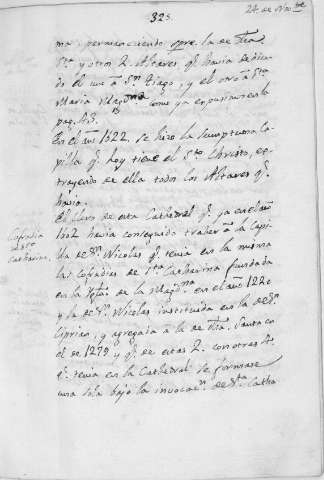 323.
24 de Nov.bre
ma, permaneciendo spre. la de Ntra.
Sra. y otros 2. Altares q.e havia dedicado
el uno â Sn. Tiago, y el otro â Sta.
Maria Magd.na como ya expusimos en la
pag. 43.
En el año 1522. se hizo la sumptuosa Ca-
pilla q.e hoy tiene el Sto. Christo, ex-
trayendo de ella todos los Altares q.e
havia.
El Clero de esta Cathedral q.e ya en el año
1302 havia conseguido traher â la Capi-
lla de Sn. Nicolas q.e tenia en la misma
las Cofradias de Sta. Catharina fundada
en la Iglª. de la Magd.na en el año 1220
y la de Sn. Nicolas instituida en la de Sn.
Ciprian, y agregada â la de Ntra.
el de 1279 y q.e de estas 2. con otras 4.
q.e tenia en la Cathedral se formase
una sola bajo la invocac.n de Sta. Catha
Cofradia
de Sta.
Catharina.